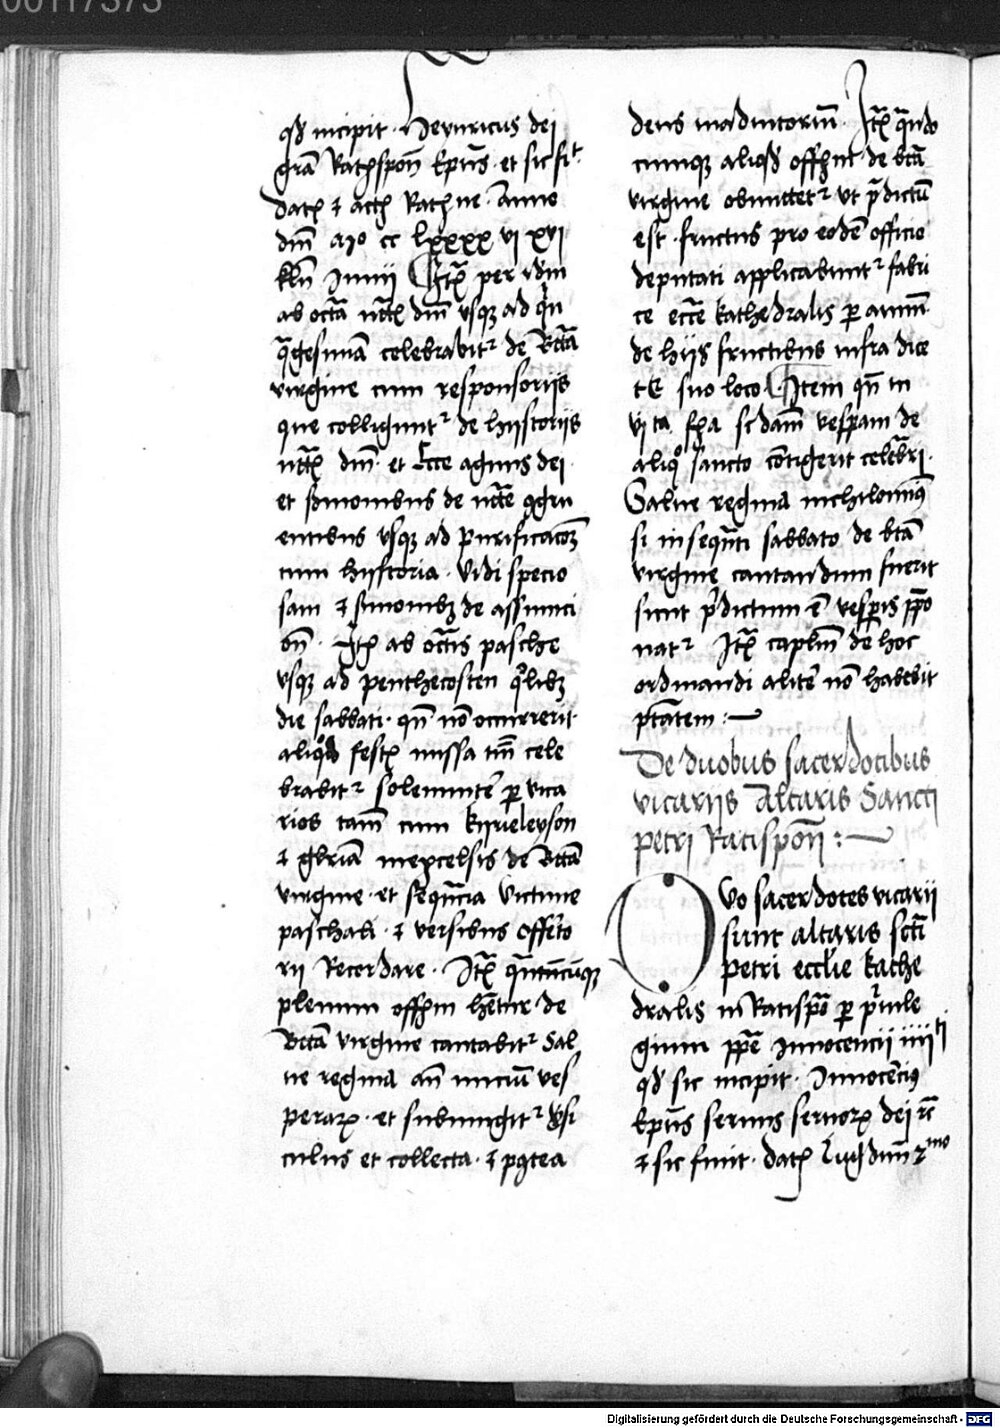 00117373
qd incipit. Heynricus dei
gra Ratispon Epus et sic fit
dat et act Ratpne Anno
dm Mo cc lxxxx vi xvi
kln Junii Itm per idm
ab octa nat dm usq ad qn
qgesima celebrabit de bta
virgine cum responsoriis
que colligunt de hystoriis
nat dm et Ecce agnus dei
et smonibus de nate congru
entibus usq ad purificacoz
cum hystoria Vidi specio
sam et smonibz de assumci
on. Itm ab octis pasche
usq ad penthecosten qlibz
die sabbati qn no occurrerit
aliqd fest missa tm cele
brabit solemnite p vica
rios tam cum kyrieleyson
et gloria inexcelsis de bta
virgine et sequencia Victime
paschali et versibus offeto
rii Recordare. Itm qntucuq
plenum offm hetur de
Bta virgine cantabit Sal
ue regina an iniciu ves
perar et subiungit vsi
culus et collecta et postea
deus in adiutorium Itm qndo
cunq aliqd offm de bta
virgine obmittet ut pdictu
est fructus pro eode officio
deputati applicabunt fabri
ce ecce kathedralis p annu
de hiis fructibus infra dice
t suo loco Item qn in
vita fia scdam vespam de
aliq sancto contigerit celebri
Salue regina nichilominus
si in sequenti sabbato de bta
virgine cantandum fuerit
sicut pdictum e vespis ppo
nat Itm caplm de hoc
ordinandi alite no habebit
ptatem :—
De duobus sacerdotibus
vicariis Altaris Sancti
petri Ratispon :—
Duo sacerdotes vicarii
sunt altaris scti
petri ecclie kathe
dralis in Ratispo p priuile
gium ppe Innocencii iiiiti
qd sic incipit. Innocencius
Epus seruus seruor dei rc
et sic finit. dat Lugduni 2mo
Digitalisierung gefördert durch die Deutsche Forschungsgemeinschaft - DFG